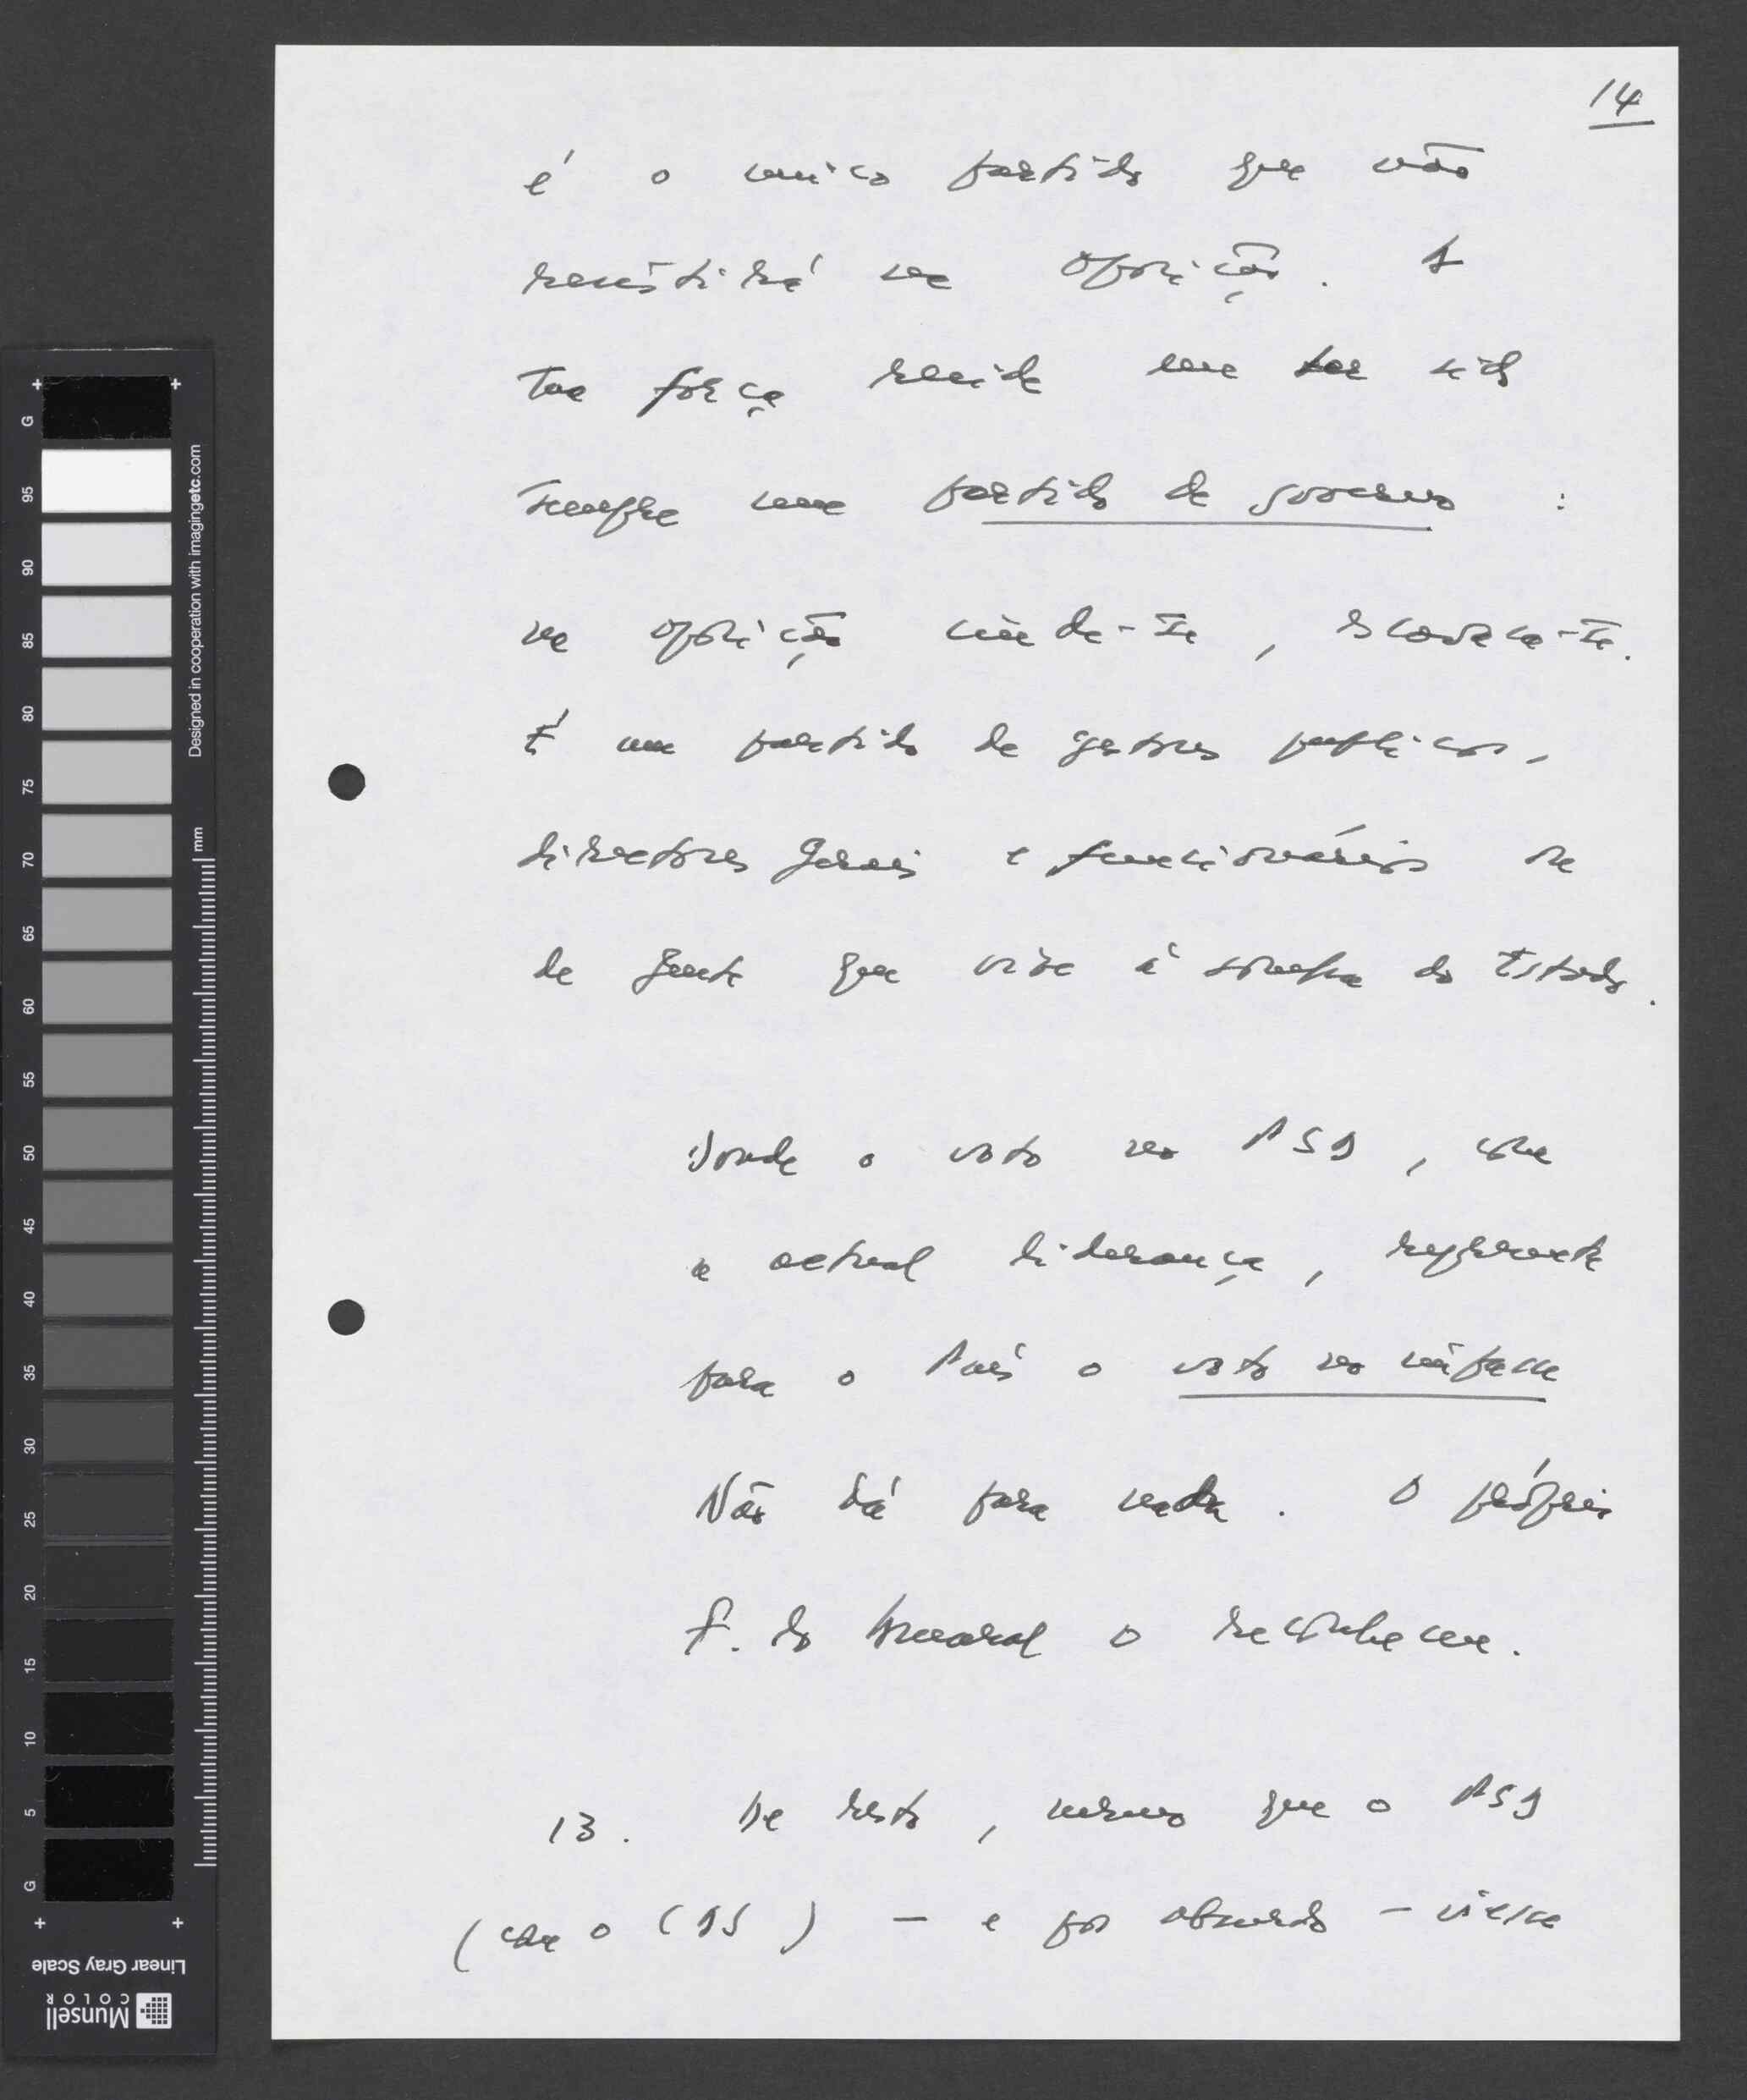 14
é o unico partido que não
resistirá na oposição. A
sua força reside em ter sido
sempre um partido de governo :
na oposição cinde-se, esvazia-se.
É um partido de gestores publicos,
directores gerais e funcionários
de gente que vive à sombra do Estado.
Donde o voto no PSD, com
a actual liderança, representa
para o País o voto no impasse
Não dá para nada. O próprio
F. do Amaral o reconhece.
13. De resto, mesmo que o PSD
(com o CDS) - e por absurdo - viesse
G 95 90 85 80 75 70 65 60 55 50 45 40 35 30 25 20 15 10 5 G
Designed in cooperation with imagingetc.com
mm
Linear Gray Scale
Munsell
COLOR